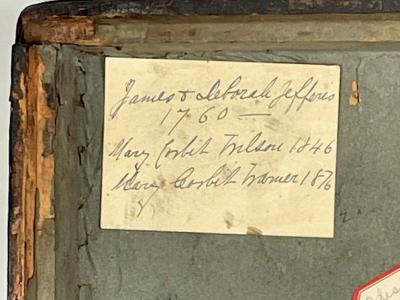 James & Deborah Jefferis
1760 —
Mary Corbit Wilson 1846
Mary Corbit Warner 1876